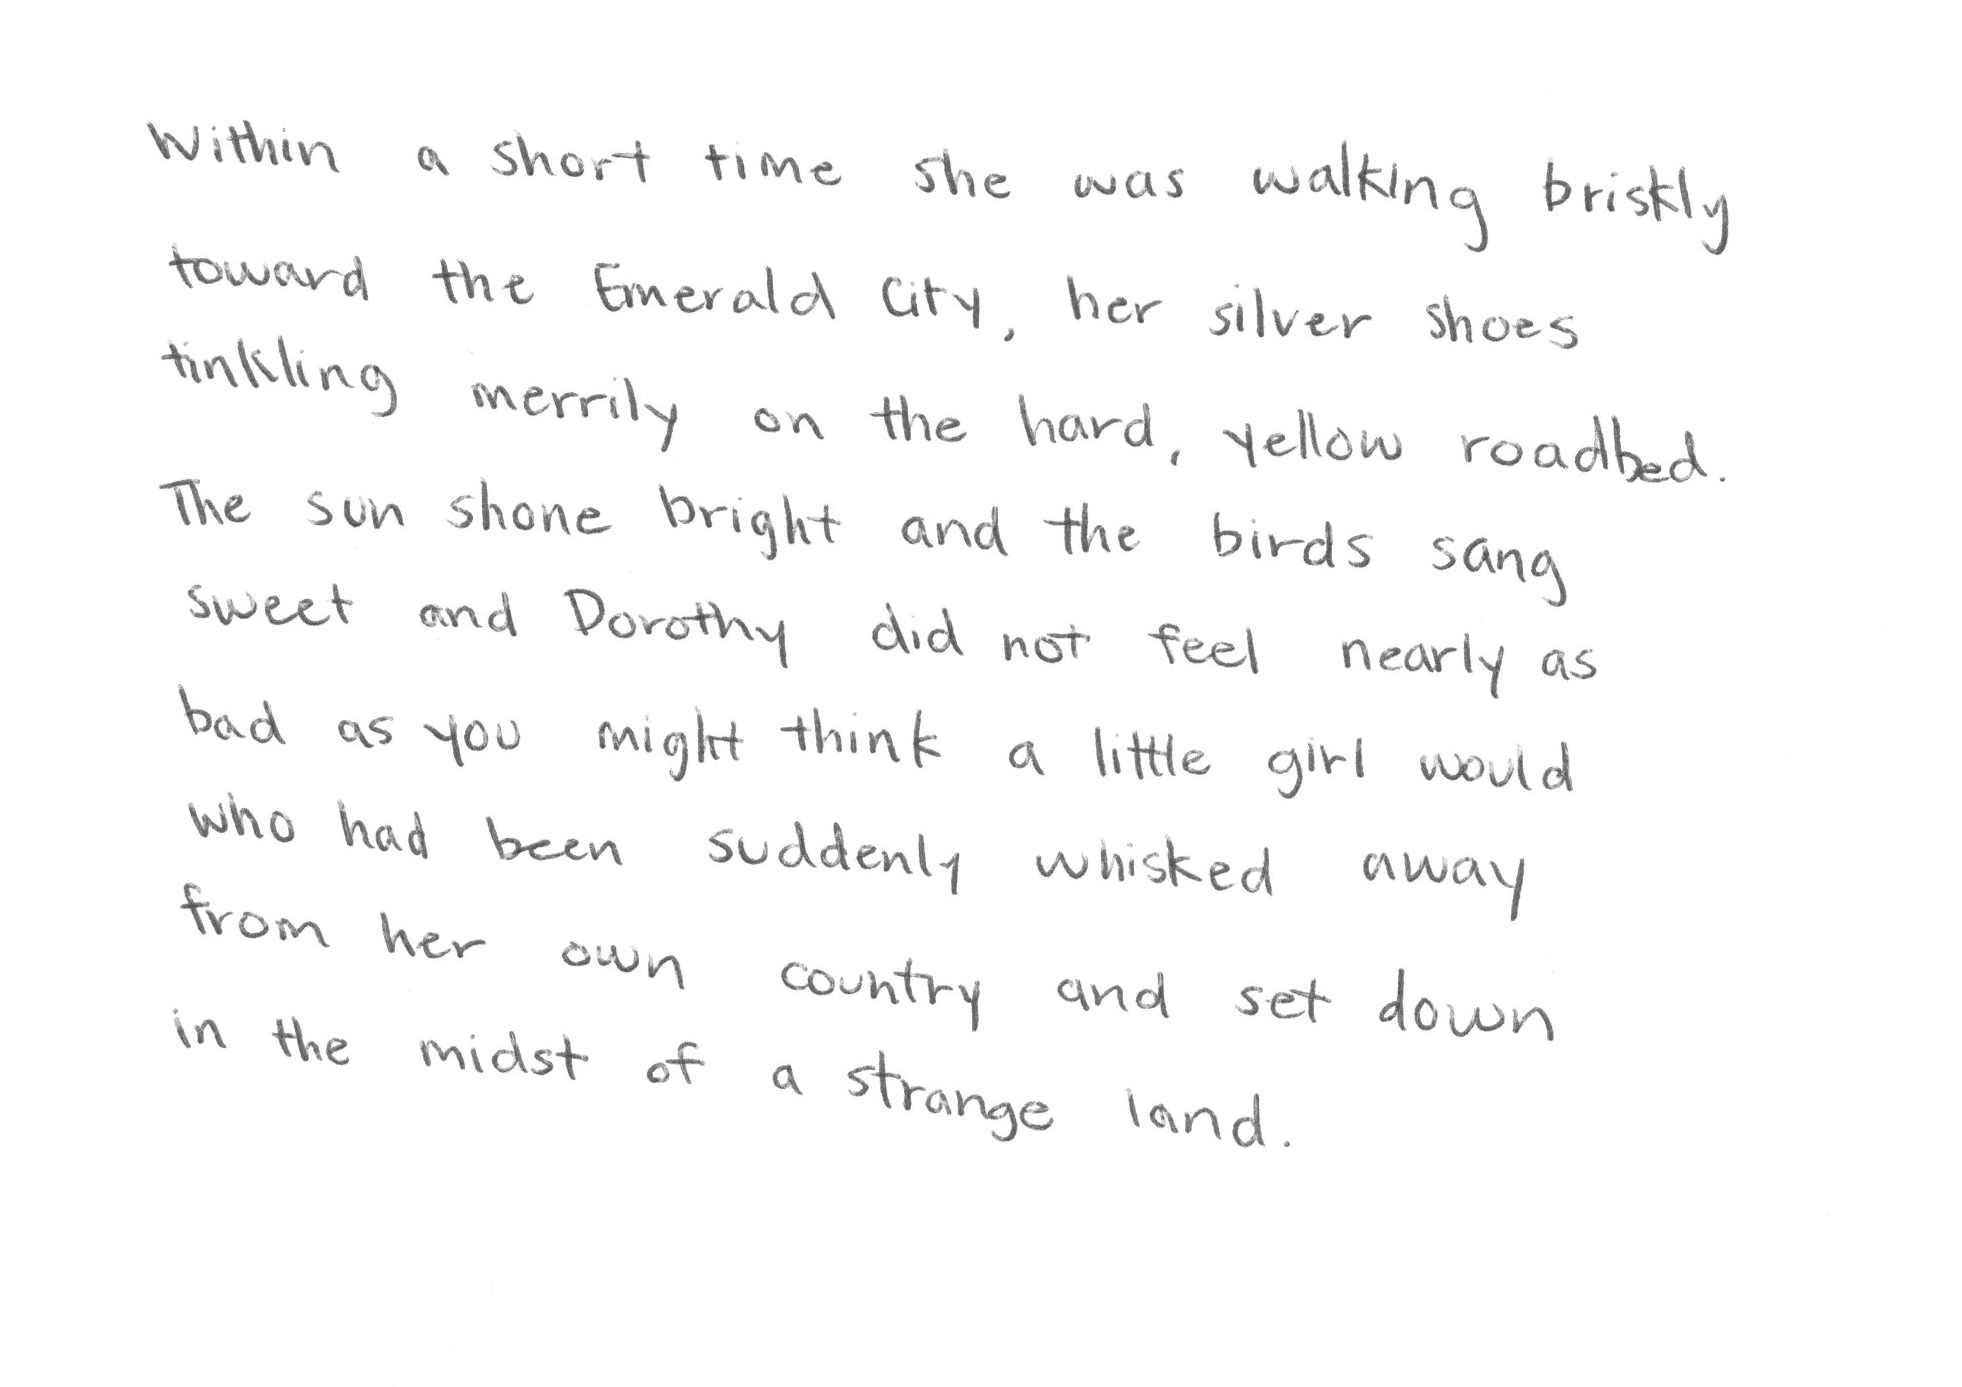 Within a short time she was walking briskly
toward the Emerald City, her silver shoes
tinkling merrily on the hard, yellow roadbed.
The sun shone bright and the birds sang
sweet and Dorothy did not feel nearly as
bad as you might think a little girl would
who had been suddenly whisked away
from her own country and set down
in the midst of a strange land.